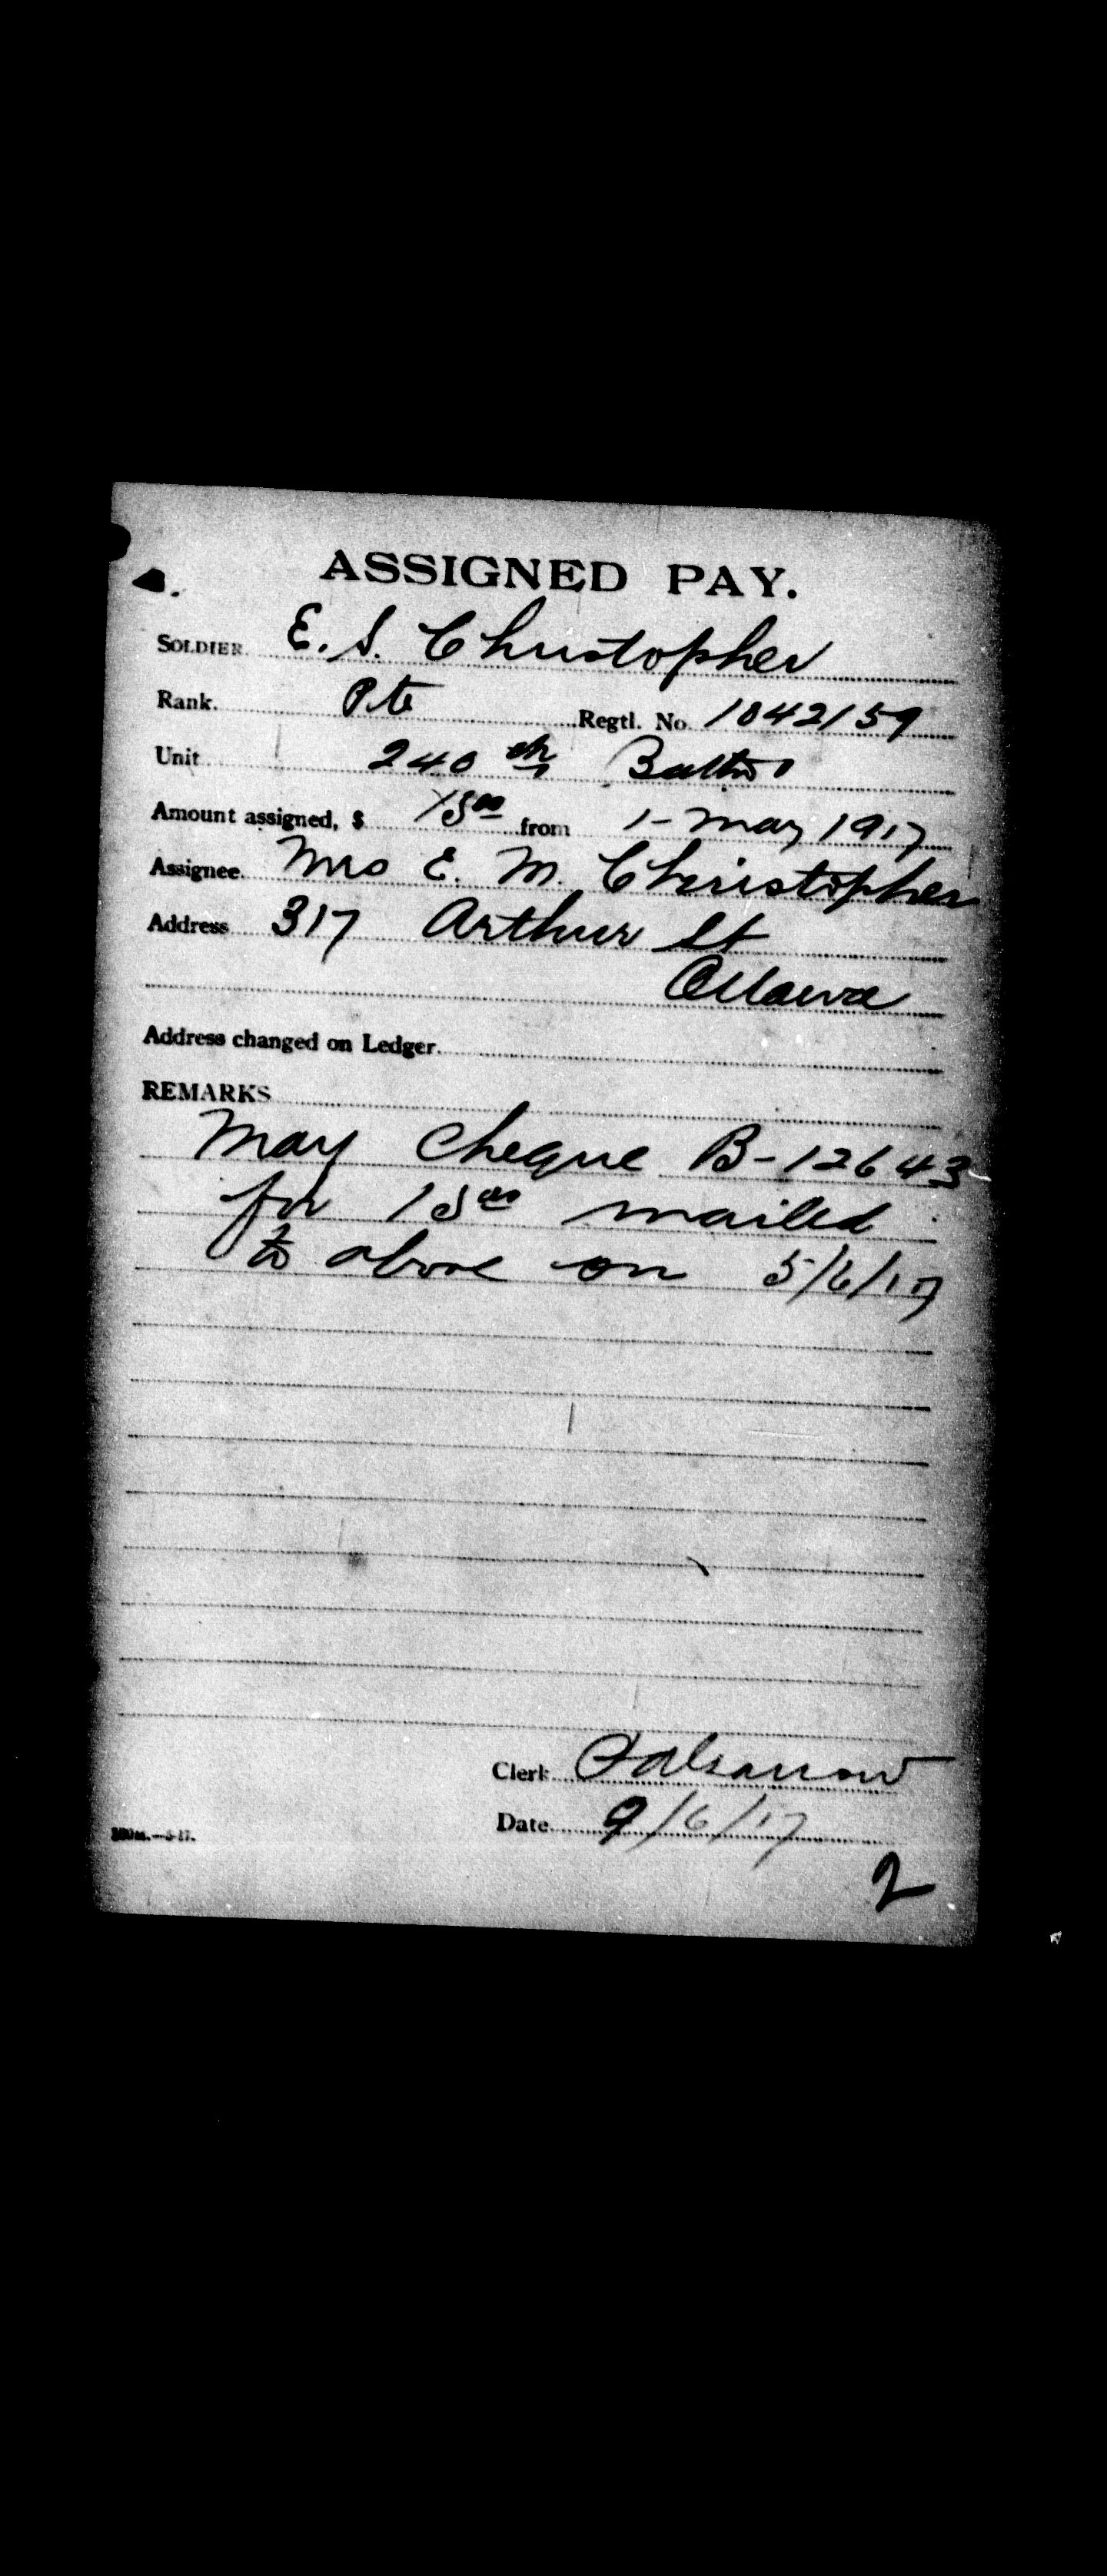 ASSIGNED PAY.
SOLDIER E. S. Christopher
Rank. Pte Regtl. No. 1042159
Unit 240 th Battn
Amount assigned, $ 15 00 from 1 - May 1917
Assignee. Mrs E. M. Christopher
Address 317 Arthur St
Ottawa
Address changed on Ledger.
REMARKS
May Cheque B-12643
for 15 00 mailed
to above on 5/6/17
Clerk
Date 9/6/17
2